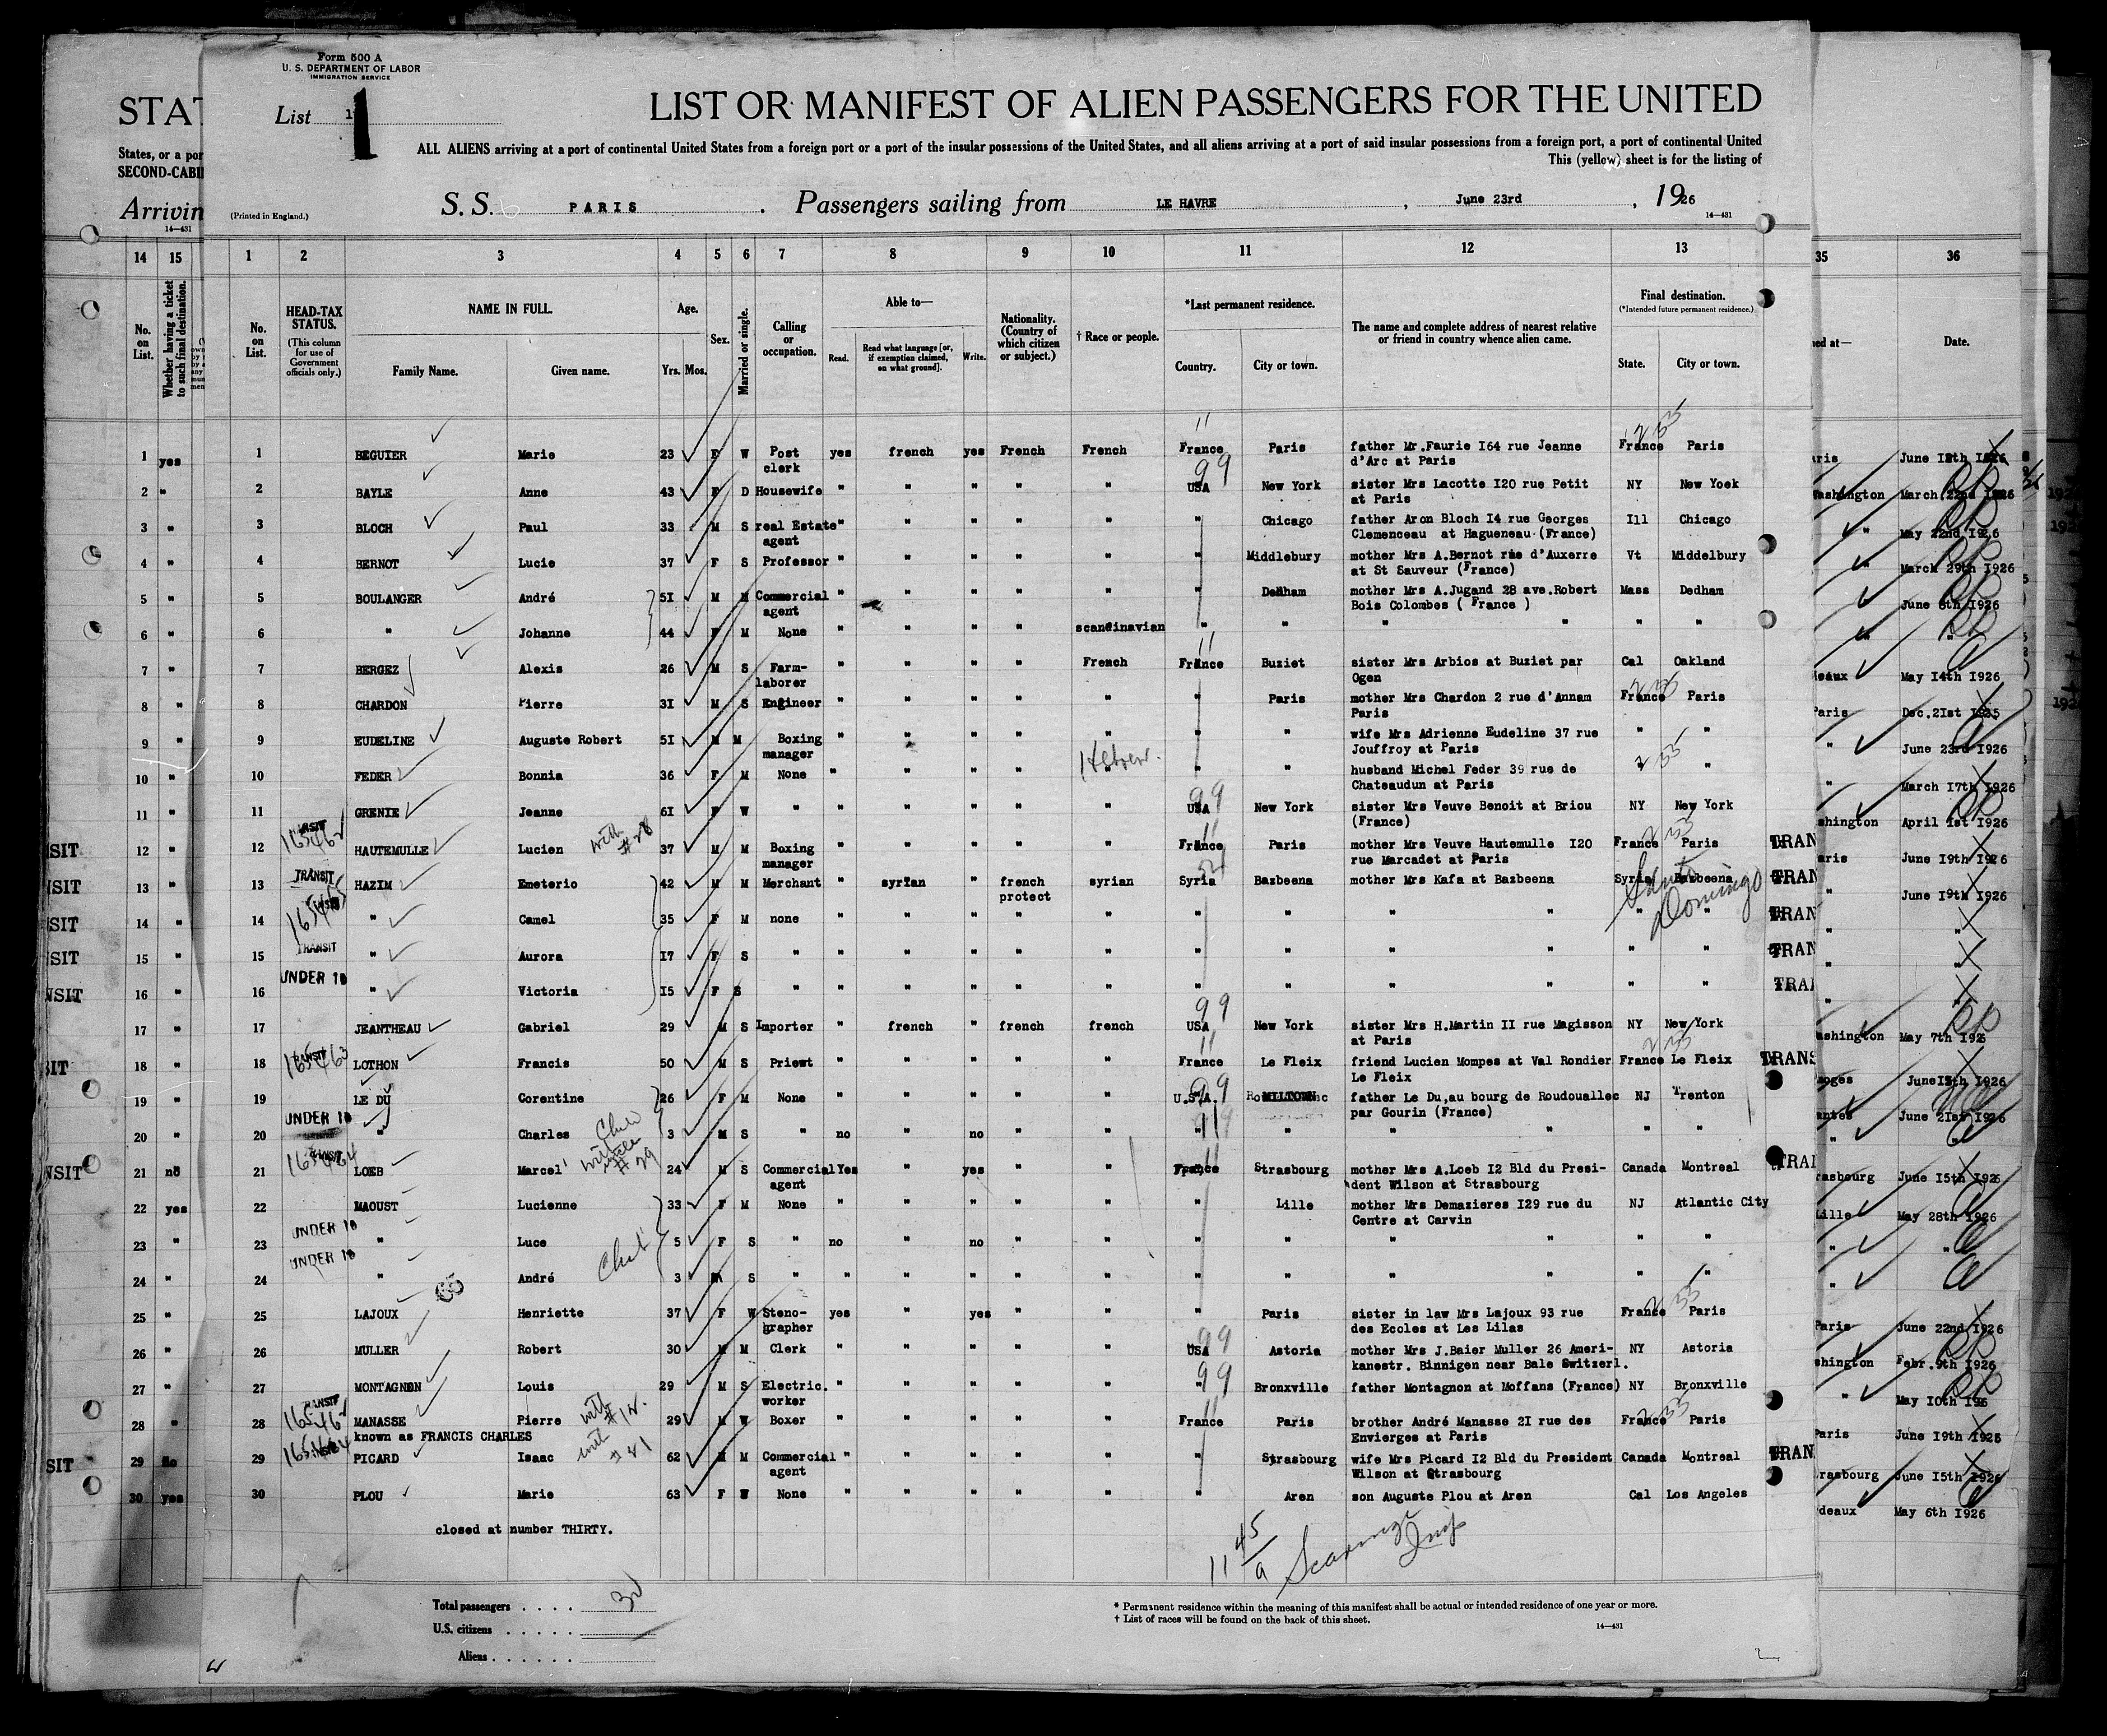 Form 500 A
U. S. DEPARTMENT OF LABOR
IMMIGRATION SERVICE
STAT
List 1
LIST OR MANIFEST OF ALIEN PASSENGERS FOR THE UNITED
States, or a por
SECOND-CABI
ALL ALIENS arriving at a port of continental United States from a foreign port or a port of the insular possessions of the United States, and all aliens arriving at a port of said insular possessions from a foreign port, a port of continental United
This (yellow) sheet is for the listing of
Arrivin
(Printed in England.)
S. S. PARIS . Passengers sailing from LE HAVRE , June 23rd , 1926
14—431
14—431
14 15 1 2 3 4 5 6 7 8 9 10 11 12 13 35 36
No. on List. Whether having a ticket to such final destination. No. on List. HEAD-TAX STATUS. (This column for use of Government officials only.) NAME IN FULL. Family Name. Given name. Age. Yrs. Mos. Sex. Married or single. Calling or occupation. Able to— Read. Read what language [or, if exemption claimed, on what ground]. Write. Nationality. (Country of which citizen or subject.) † Race or people. *Last permanent residence. Country. City or town. The name and complete address of nearest relative or friend in country whence alien came. Final destination. (*Intended future permanent residence.) State. City or town. ed at— Date.
1 yes 1 BEGUIER Marie 23 F W Post yes french yes French French France Paris father Mr.Faurie I64 rue Jeanne France Paris
clerk d'Arc at Paris
2 " 2 BAYLE Anne 43 F D Housewife " " " " " USA New York sister Mrs Lacotte I20 rue Petit NY New Yoek Washington March 22nd 1926
at Paris
3 " 3 BLOCH Paul 33 M S real Estate " " " " " " Chicago father Aron Bloch I4 rue Georges Ill Chicago " May 22nd I926
agent Clemenceau at Hagueneau (France)
4 " 4 BERNOT Lucie 37 F S Professor " " " " " " Middlebury mother Mrs A.Bernot rue d'Auxerre Vt Middelbury " March 29th I926
at St Sauveur (France)
5 " 5 BOULANGER André 5I M M Commercial " " " " " " Dedham mother Mrs A.Jugand 28 ave.Robert Mass Dedham June 8th I926
agent Bois Colombes ( France )
6 " 6 " Johanne 44 F M None " " " " scandinavian " " " " " " "
7 " 7 BERGEZ Alexis 26 M S Farm- " " " " French France Buziet sister Mrs Arbios at Buziet par Cal Oakland deaux May I4th I926
laborer Ogen
8 " 8 CHARDON Pierre 3I M S Engineer " " " " " " Paris mother Mrs Chardon 2 rue d'Annam France Paris Paris Dec.2Ist I925
Paris
9 " 9 EUDELINE Auguste Robert 5I M M Boxing " " " " " " " wife Mrs Adrienne Eudeline 37 rue " " " June 23rd I926
manager Jouffroy at Paris
10 " 10 FEDER Bonnia 36 F M None " " " " Hebrew. " " husband Michel Feder 39 rue de " " " March I7th I926
Chateaudun at Paris
11 " 11 GRENIE Jeanne 6I F W " " " " " " USA New York sister Mrs Veuve Benoit at Briou NY New York shington April 1st I926
(France)
SIT 12 " 12 165462 HAUTEMULLE Lucien with #28 37 M M Boxing " " " " " France Paris mother Mrs Veuve Hautemulle I20 France Paris TRAN aris June I9th I926
manager rue Marcadet at Paris
NSIT 13 " 13 TRANSIT HAZIM Emeterio 42 M M Merchant " syrian " french syrian Syria Bazbeena mother Mrs Kafa at Bazbeena Syria Bazbeena TRAN " June I9th I926
protect Santo Domingo
SIT 14 " 14 165465 " Camel 35 F M none " " " " " " " " " " " TRAN " "
SIT 15 " 15 TRANSIT " Aurora I7 F S " " " " " " " " " " " " TRAN " "
NSIT 16 " 16 UNDER 18 " Victoria I5 F S " " " " " " " " " " " " TRAN " "
17 " 17 JEANTHEAU Gabriel 29 M S Importer " french " french french USA New York sister Mrs H.Martin II rue Magisson NY New York ashington May 7th
at Paris
SIT 18 " 18 165463 LOTHON Francis 50 M S Priewt " " " " " France Le Fleix friend Lucien Mompes at Val Rondier France Le Fleix TRANS moges June I926
Le Fleix
19 " 19 LE DU Corentine 26 F M None " " " " " U.S.A. MILLTOWN father Le Du,au bourg de Roudouallec NJ Trenton antes June 2Ist I926
par Gourin (France)
20 " 20 UNDER 18 " Charles Chil 3 M S " no " no " " " " " " " " " "
NSIT 21 no 21 165464 LOEB Marcel with uncle #29 24 M S Commercial Yes " yes " " France Strasbourg mother Mrs A.Loeb I2 Bld du Presi- Canada Montreal TRAN rasbourg June I5th I926
agent dent Wilson at Strasbourg
22 yes 22 MAOUST Lucienne 33 F M None " " " " " " Lille mother Mrs Demazieres I29 rue du NJ Atlantic City Lille May 28th I926
Centre at Carvin
23 " 23 UNDER 18 " Luce 5 F S " no " no " " " " " " " " " "
24 " 24 UNDER 18 " André 3 M S " " " " " " " " " " " " "
25 " 25 LAJOUX Henriette 37 F W Steno- yes " yes " " " Paris sister in law Mrs Lajoux 93 rue France Paris Paris June 22nd I926
grapher des Ecoles at Les Lilas
26 " 26 MULLER Robert 30 M M Clerk " " " " " USA Astoria mother Mrs J.Baier Muller 26 Ameri- NY Astoria shington Febr.9th I926
kanestr. Binnigen near Bale Switzerl.
27 " 27 MONTAGNON Louis 29 M S Electric. " " " " " " Bronxville father Montagnon at Moffans (France) NY Bronxville " May I0th
worker
28 " 28 165462 MANASSE Pierre with #12. 29 M W Boxer " " " " " France Paris brother André Manasse 2I rue des France Paris Paris June I9th
known as FRANCIS CHARLES Envierges at Paris
SIT 29 No 29 165464 PICARD Isaac with #21 62 M M Commercial " " " " " " Strasbourg wife Mrs Picard I2 Bld du President Canada Montreal TRAN rasbourg June I5th I926
agent Wilson at Strasbourg
30 yes 30 PLOU Marie 63 F W None " " " " " " Aren son Auguste Plou at Aren Cal Los Angeles deaux May 6th I926
closed at number THIRTY.
11 45/a
Total passengers . . . . 30
U.S. citizens . . . . .
Aliens . . . . . .
* Permanent residence within the meaning of this manifest shall be actual or intended residence of one year or more.
† List of races will be found on the back of this sheet.
14—431